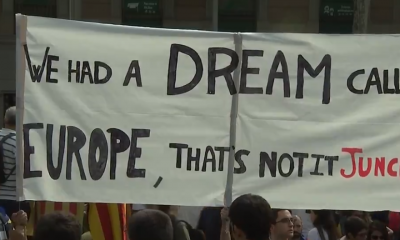 WE HAD A DREAM CALL
EUROPE, THAT'S NOT IT JUNC